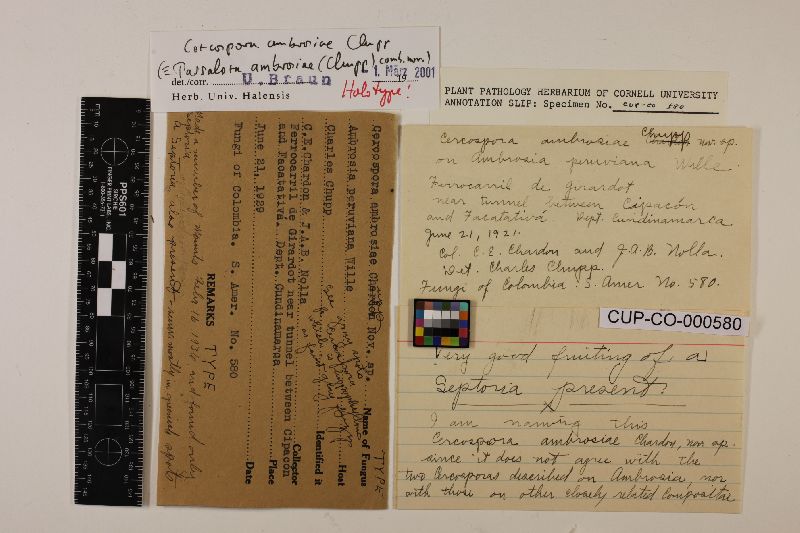 Cercospora ambrosiae Chupp
(≡ Passalora ambrosiae (Chupp) comb. nov.)
det./corr. U. Braun 1. März 2001
Herb. Univ. Halensis Holotype!
PLANT PATHOLOGY HERBARIUM OF CORNELL UNIVERSITY
ANNOTATION SLIP: Specimen No. CUP-CO 580
Cercospora ambrosiae Chupp nov. sp.
on Ambrosia peruviana Wille
Ferrocarril de Girardot
near tunnel between Cipacón
and Facatativá. Dept. Cundinamarca
June 21, 1921.
Col. C. E. Chardon and J.A.B. Nolla.
Det. Charles Chupp.
Fungi of Colombia. S. Amer. No. 580.
CUP-CO-000580
Very good fruiting of a
Septoria present.
I am naming this
Cercospora ambrosiae Chardon, nov. sp.
since it does not agree with the
two Cercosporas described on Ambrosia, nor
with those on other closely related Compositae
TYPE
Cercospora ambrosiae Chardon Nov. sp. Name of Fungus
Ambrosia Peruviana Wille Host
Charles Chupp Identified it
C.E.Chardon & J.A.B. Nolla Collector
Ferrocarril de Girardot near tunnel between Cipacón
and Facatativa. Dept. Cundinamarca Place
June 21, 1929 Date
Fungi of Colombia. S. Amer. No. 580
REMARKS TYPE
Made a number of mounts Feb. 16 1934 and found only
Septoria
A Septoria also present
PPS601